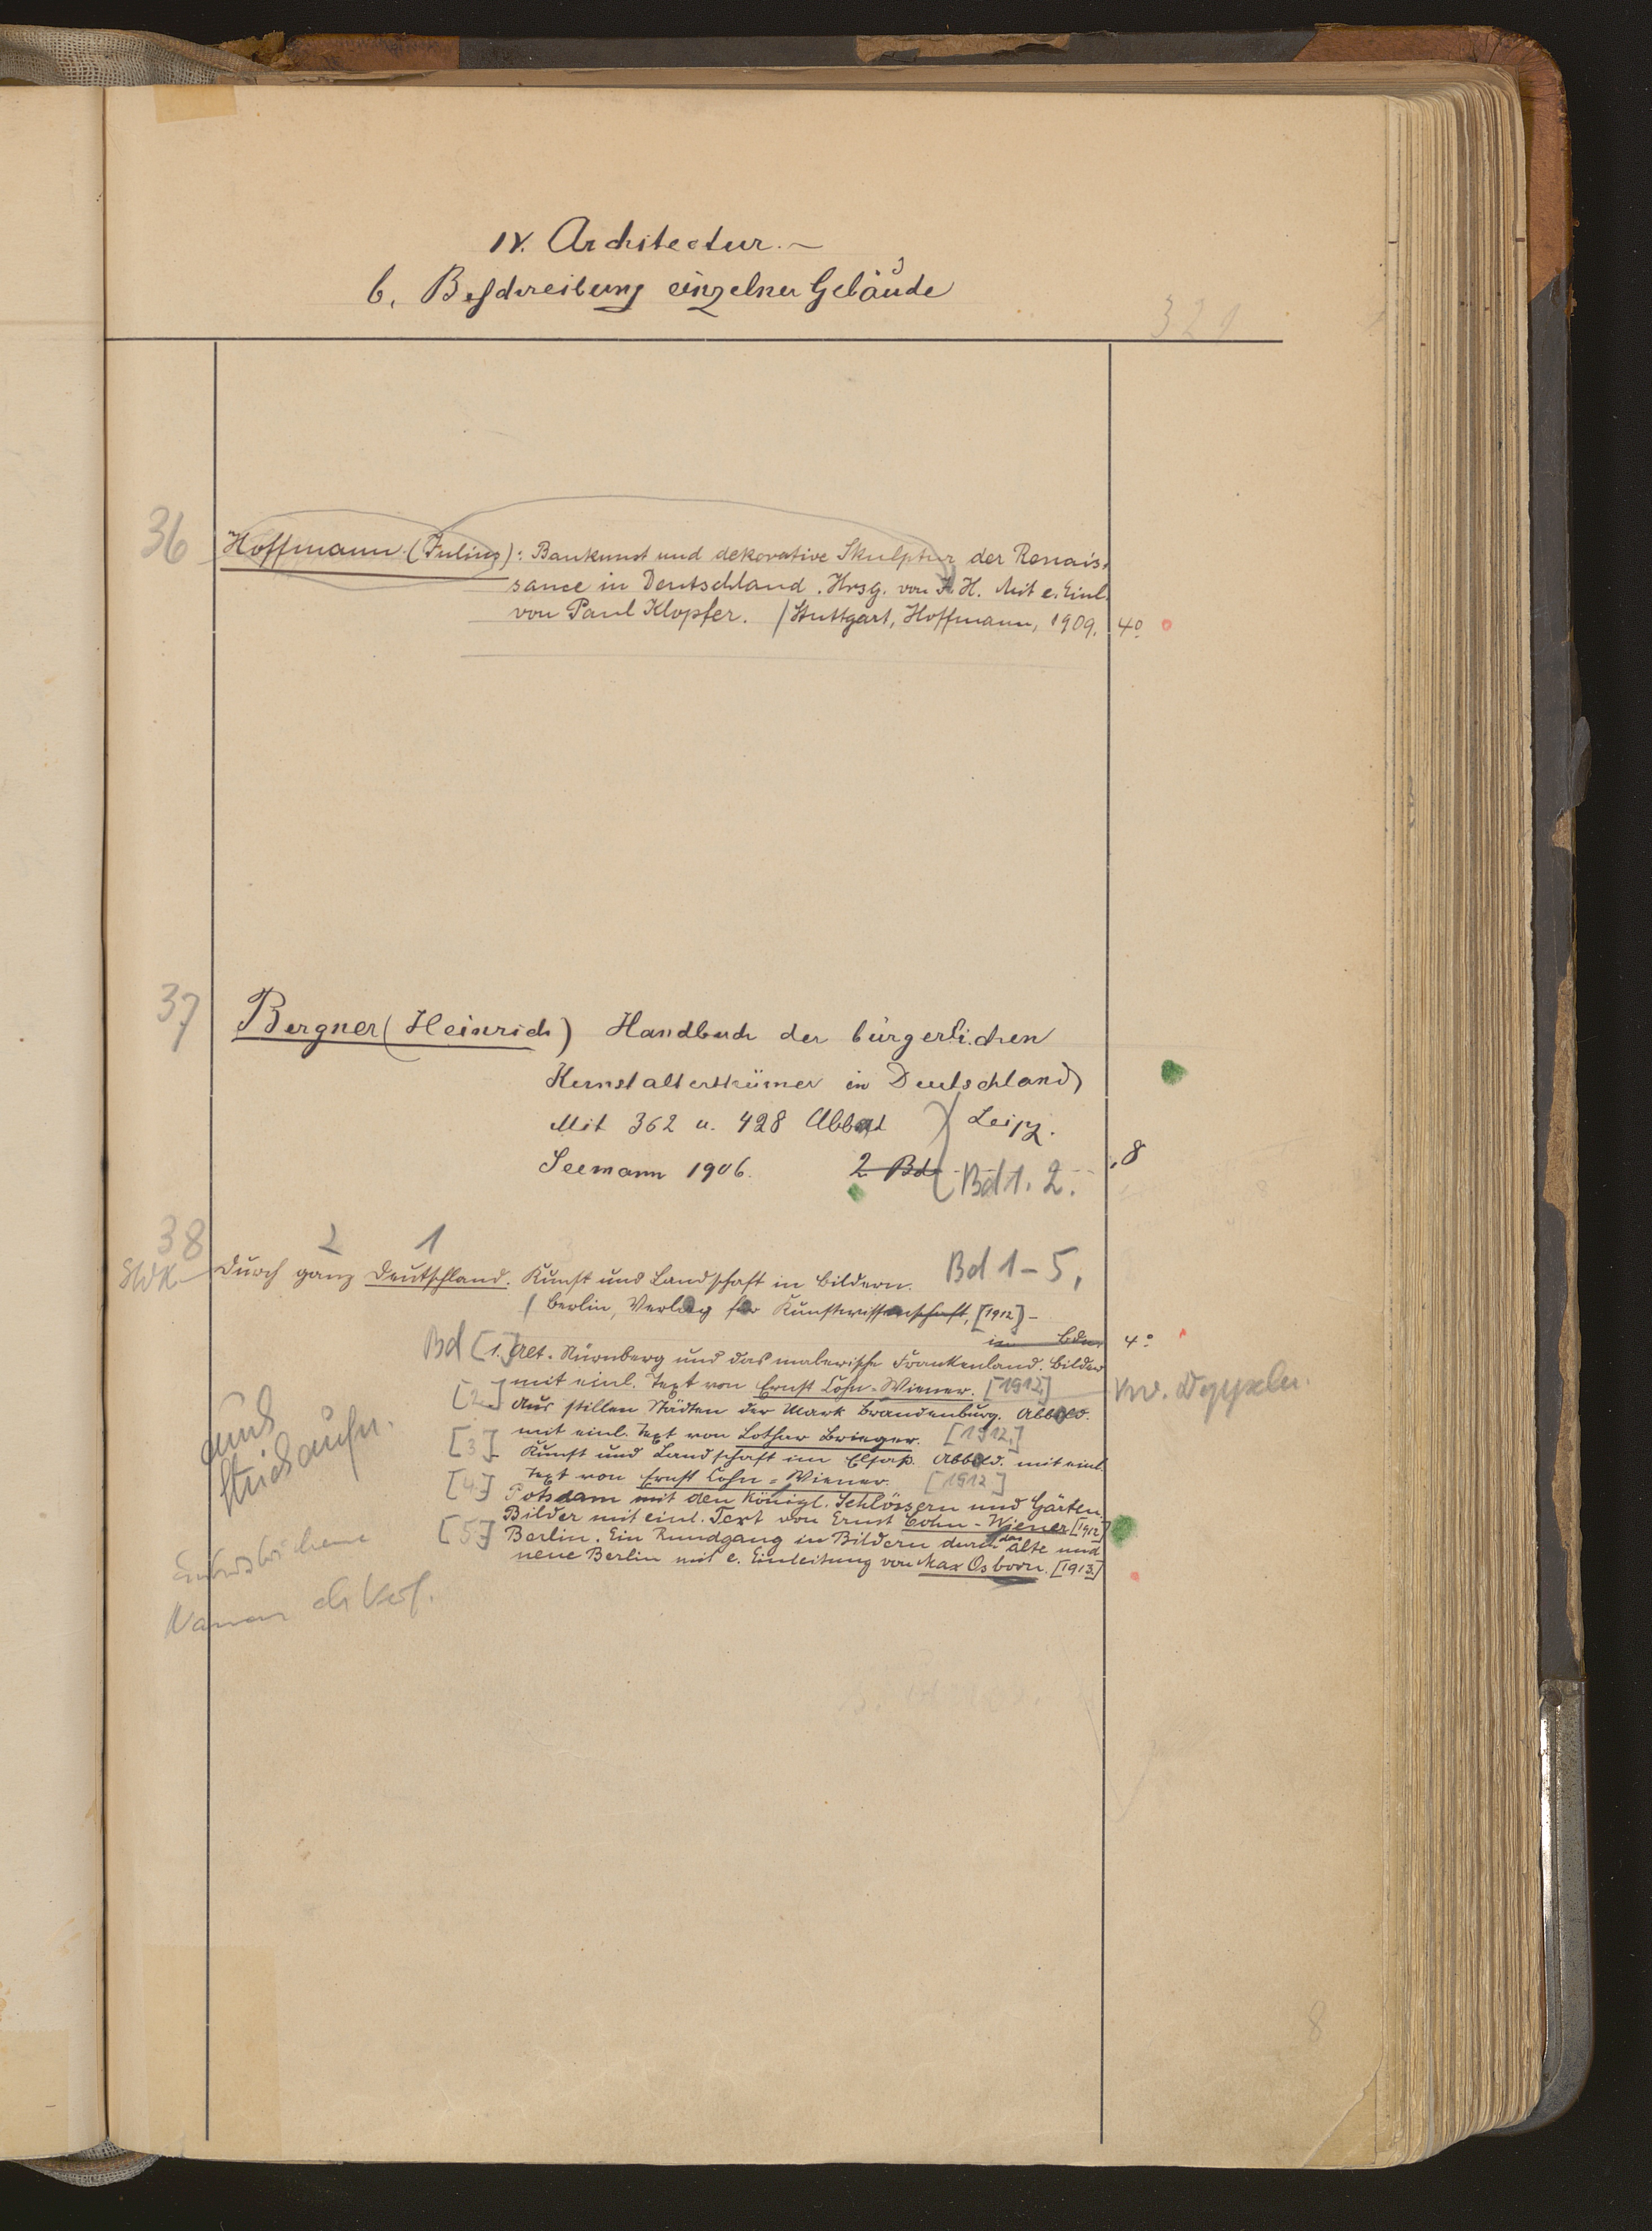 IV. Architectur.
b. Beschreibung einzelner Gebäude
321
36
Hoffmann (Julius): Baukunst und dekorative Skulptur der Renais-
sance in Deutschland. Hrsg. von J. H. Mit e. Einl.
von Paul Klopfer. / Stuttgart, Hoffmann, 1909. 4°
37
Bergner (Heinrich) Handbuch der bürgerlichen
Kunstaltertümer in Deutschland
Mit 362 u. 428 Abb Leipz.
Seemann 1906. 2 Bde Bd 1. 2. 8
38
2 1
Durch ganz Deutschland. Kunst und Landschaft in Bildern. Bd 1-5,
/ Berlin, Verlag für Kunstwissenschaft, [1912] -
in Bdn 4°
Bd [1.] Alt-Nürnberg und das malerische Frankenland. Bilder
mit einl. Text von Ernst Cohn-Wiener. [1912]
[2.] Aus stillen Städten der Mark Brandenburg. Abbild.
mit einl. Text von Lothar Brieger. [1912.]
[3.] Kunst und Landschaft im Elsaß. Abbild. mit einl.
Text von Ernst Cohn-Wiener. [1912]
[4.] Potsdam mit den Königl. Schlössern und Gärten.
Bilder mit einl. Text von Ernst Cohn-Wiener [1912]
[5.] Berlin. Ein Rundgang in Bildern durch das alte und
neue Berlin mit e. Einleitung von Max Osborn. [1913.]
und
Namen
8